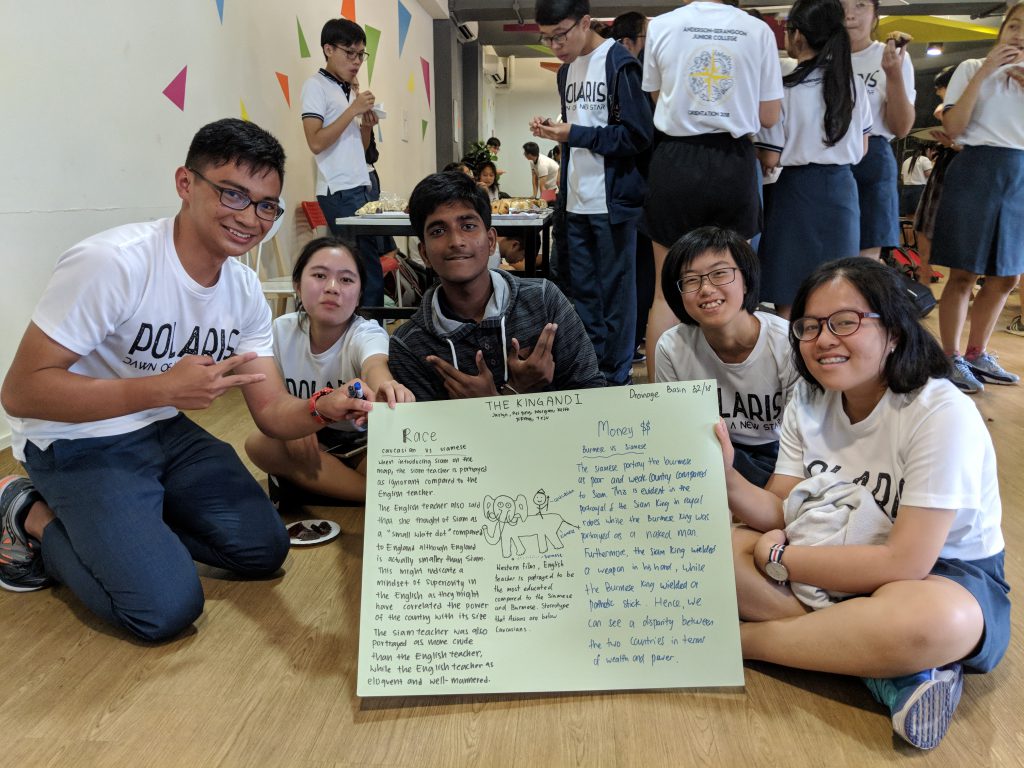 ANDERSON-SERANGOON
JUNIOR COLLEGE
ORIENTATION 2018
POLARIS
N OF A NEW STAR
POLARIS
DAWN OF
POL
LARIS
A NEW STAR
POLAR
THE KING AND I
Drainage Basin 32/18
Race
caucasian vs siamese
When introducing Siam on the
map, the siam teacher is portrayed
as ignorant compared to the
English teacher.
The English teacher also said
that she thought of Siam as
a "small white dot" compared
to England although England
is actually smaller than Siam.
This might indicate a
mindset of superiority in
the English as they might
have correlated the power
of the country with its size
The siam teacher was also
portrayed as more crude
than the English teacher,
while the English teacher as
eloquent and well-mannered.
caucasian
siamese
burmese
Western film, English
teacher is portrayed to be
the most educated
compared to the Siamese
and Burmese. Stereotype
that Asians are below
Caucasians.
Money $$
Burmese vs Siamese
The siamese portray the burmese
as poor and weak country compared
to Siam. This is evident in the
portrayal of the Siam King in royal
robes while the Burmese King was
portrayed as a naked man.
Furthermore, the Siam King wielded
a weapon in his hand, while
the Burmese King wielded a
pathetic stick. Hence, we
can see a disparity between
the two countries in terms
of wealth and power.